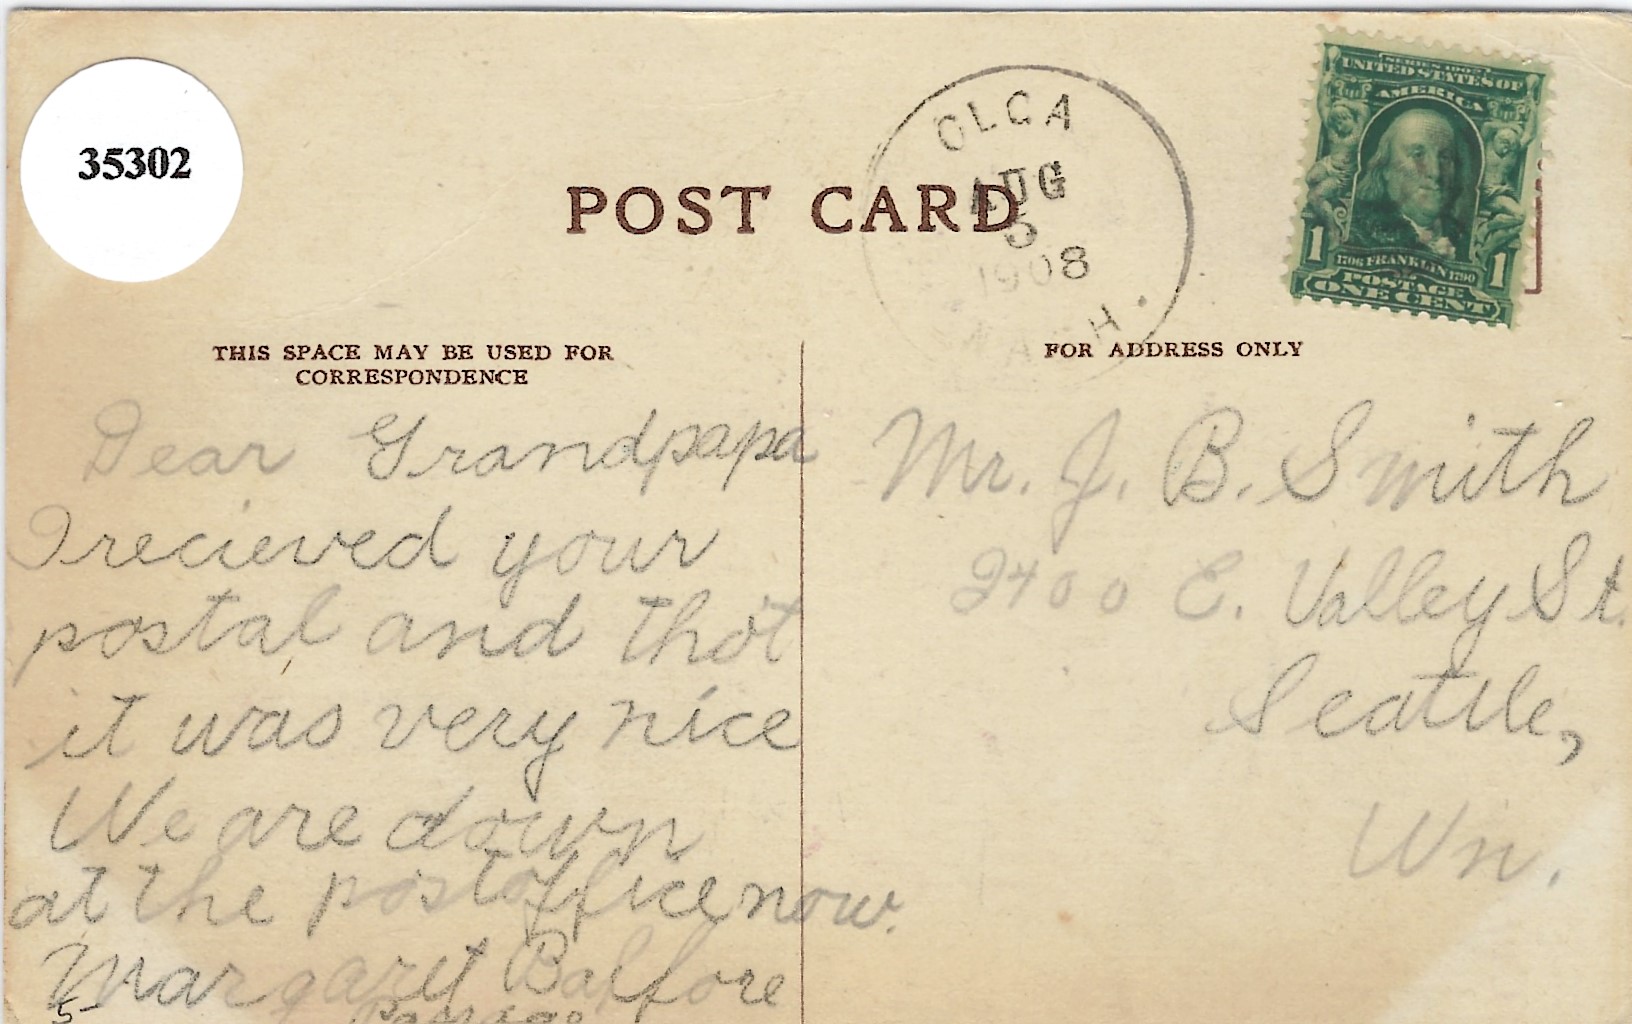 35302
POST CARD
OLGA
AUG
5
1908
WASH.
SERIES 1902
UNITED STATES OF
AMERICA
1 1
1706 FRANKLIN 1790
POSTAGE
ONE CENT
THIS SPACE MAY BE USED FOR
CORRESPONDENCE
FOR ADDRESS ONLY
Dear Grandpapa
I recieved your
postal and thot
it was very nice
We are down
at the postoffice now.
Margaret Balfore
5-
Mr. J. B. Smith
2400 E. Valley St.
Seattle,
Wn.